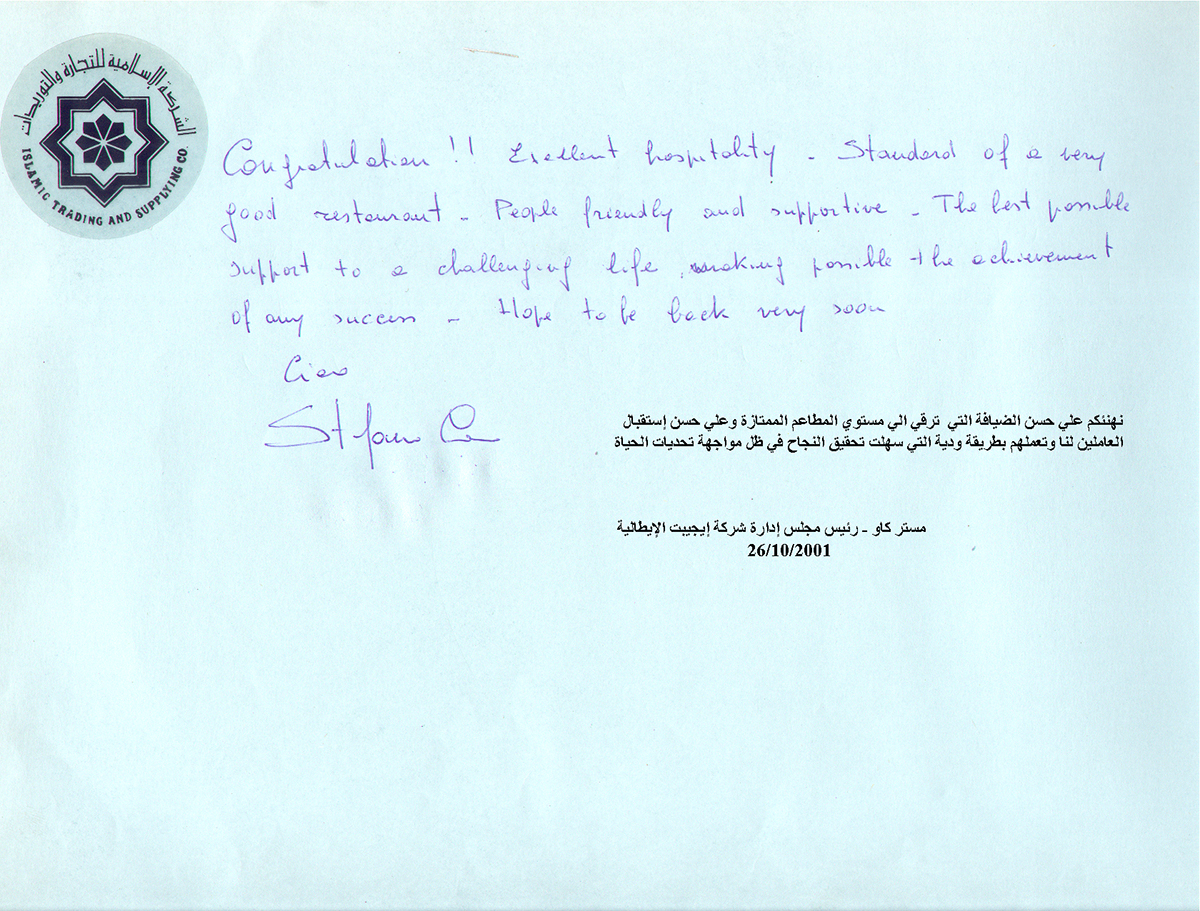 الشركة الإسلامية للتجارة والتوريدات
ISLAMIC TRADING AND SUPPLYING CO.
Congratulation !! Exellent hospitality - Standard of a very
good restaurant - People friendly and supportive - The best possible
support to a challenging life, making possible the achievement
of any success - Hope to be back very soon
Ciao
نهنئكم علي حسن الضيافة التي ترقي الي مستوي المطاعم الممتازة وعلي حسن إستقبال
العاملين لنا وتعملهم بطريقة ودية التي سهلت تحقيق النجاح في ظل مواجهة تحديات الحياة
مستر كاو - رئيس مجلس إدارة شركة إيجيبت الإيطالية
26/10/2001